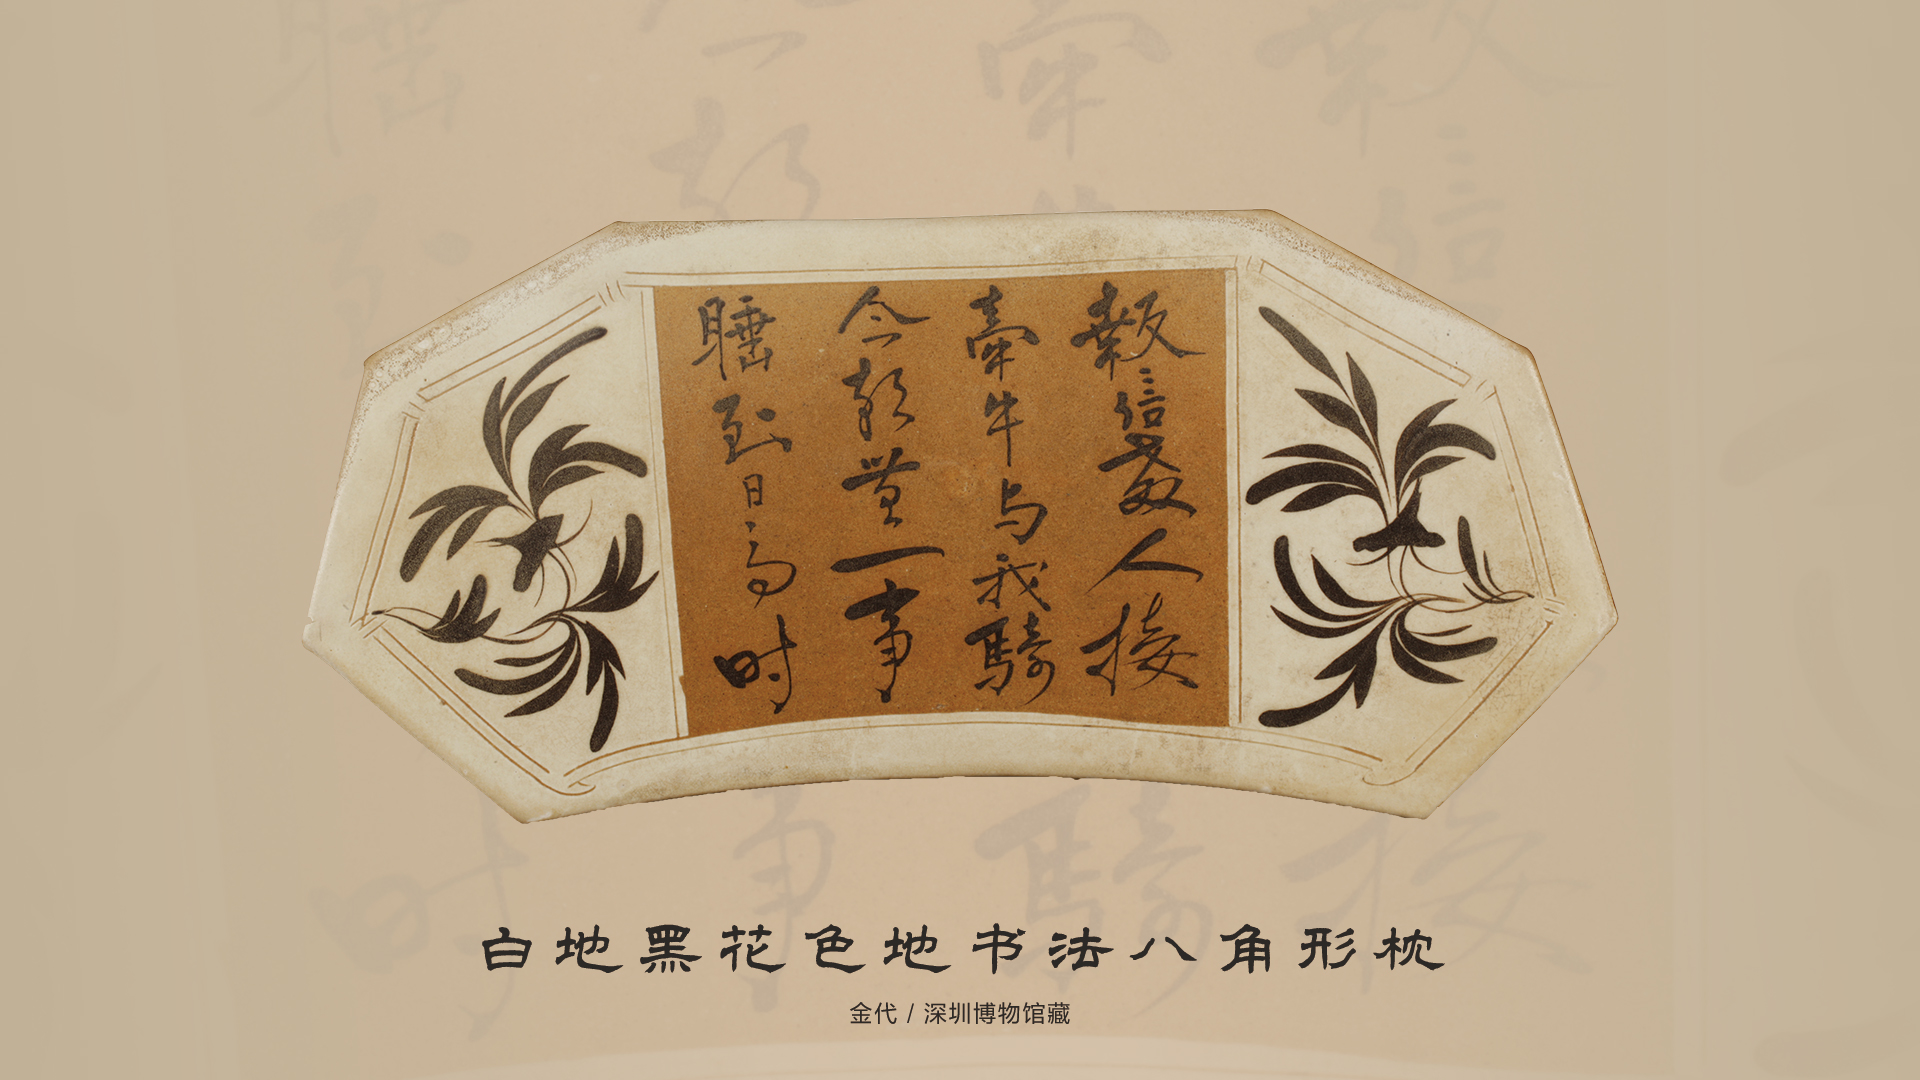 報信人接
牽牛与我騎
今朝無一事
睡到日高時
白地黑花色地书法八角形枕
金代 / 深圳博物馆藏